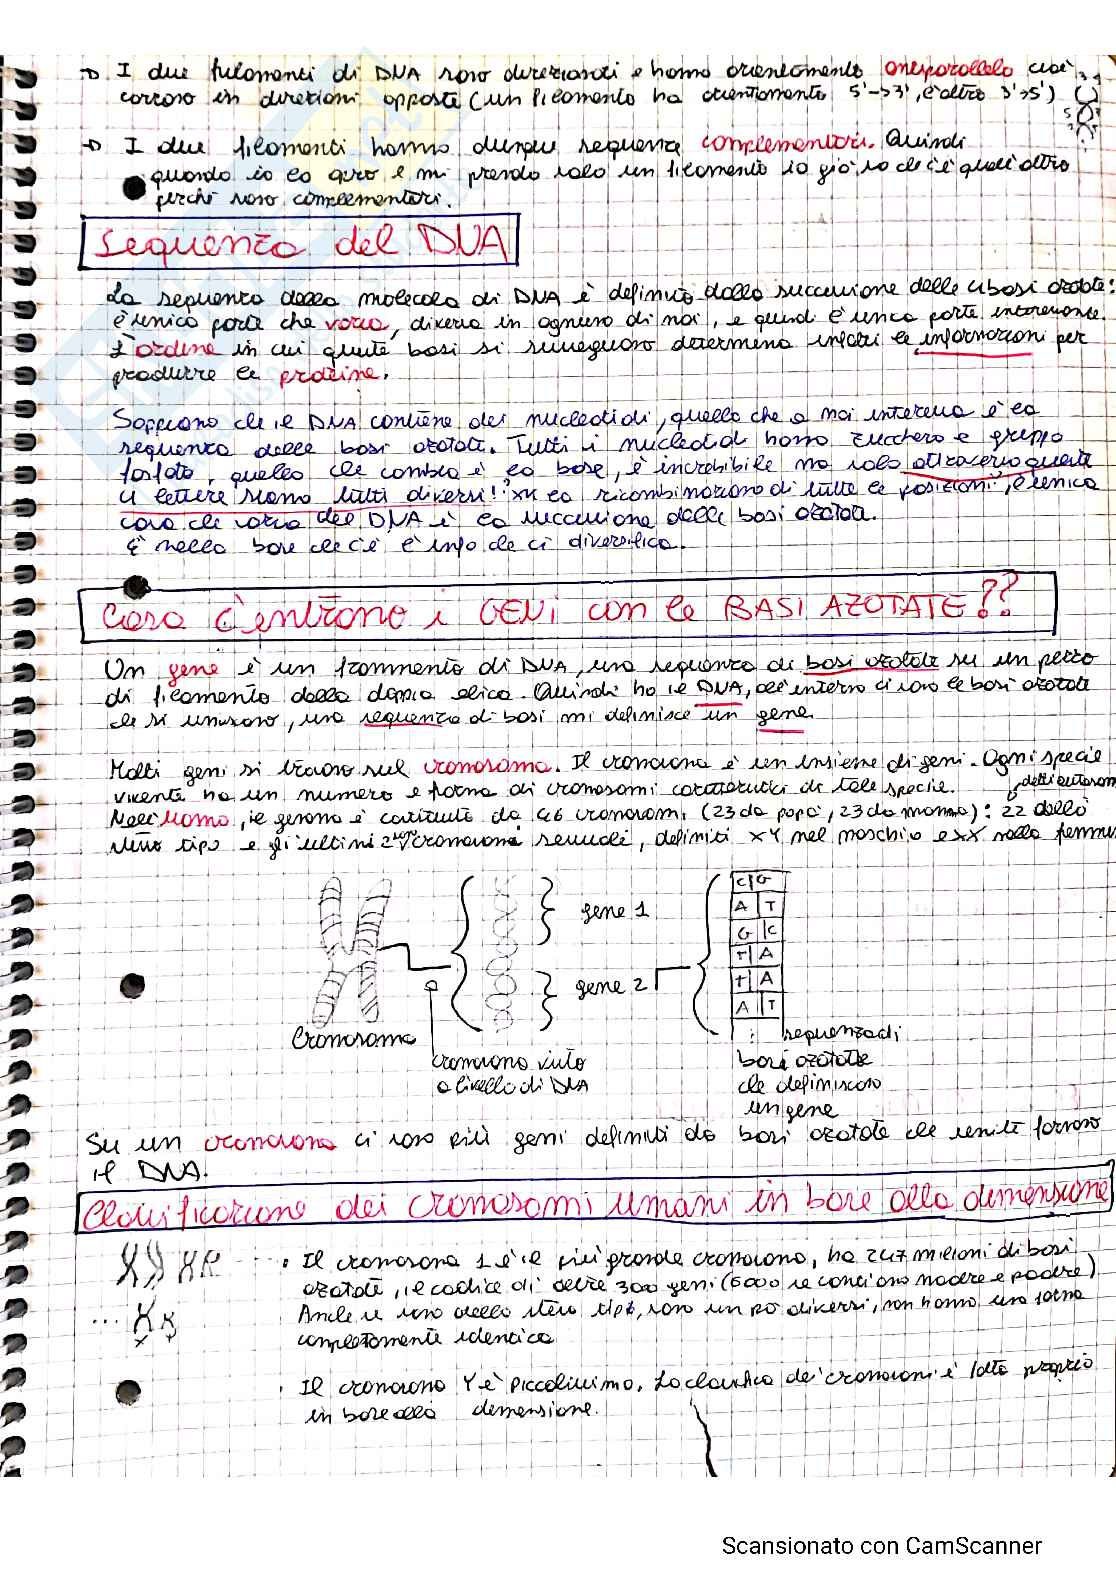 → I due filamenti di DNA sono direzionati e hanno orientamento antiparallelo cioè
corrono in direzioni opposte (un filamento ha orientamento 5'->3', l'altro 3'->5')
→ I due filamenti hanno dunque sequenza complementari. Quindi
quando io la apro e mi prendo solo un filamento so già se che c'è quell'altro
perché sono complementari.
Sequenza del DNA
La sequenza della molecola di DNA è definita dalla successione delle 4 basi azotate:
è l'unica parte che varia, diversa in ognuno di noi, e quindi è l'unica parte interessante.
L'ordine in cui queste basi si susseguono determina infatti le informazioni per
produrre le proteine.
Sappiamo che il DNA contiene dei nucleotidi, quello che a noi interessa è la
sequenza delle basi azotate. Tutti i nucleotidi hanno zucchero e gruppo
fosfato, quello che cambia è la base, è incredibile ma solo attraverso queste
4 lettere siamo tutti diversi! x la ricombinazione di tutte le posizioni, l'unica
cosa che varia del DNA è la successione delle basi azotate.
È nella base che c'è l'info che ci diversifica.
Cosa c'entrano i GENI con le BASI AZOTATE??
Un gene è un frammento di DNA, una sequenza di basi azotate su un pezzo
di filamento della doppia elica. Quindi ho il DNA, all'interno ci sono le basi azotate
che si uniscono, una sequenza di basi mi definisce un gene.
Molti geni si trovano sul cromosoma. Il cromosoma è un insieme di geni. Ogni specie
vivente ha un numero e forma di cromosomi caratteristici di tale specie. detti autosomi
Nell'uomo, il genoma è costituito da 46 cromosomi (23 da papà, 23 da mamma): 22 dello
stesso tipo e gli ultimi 2 sono cromosomi sessuali, definiti XY nel maschio e XX nella femmina
C G
A T
G C
T A
T A
A T
gene 1
gene 2
Cromosoma
cromosoma visto
a livello di DNA
: sequenza di
basi azotate
che definiscono
un gene
Su un cromosoma ci sono più geni definiti da basi azotate che unite formano
il DNA.
Classificazione dei cromosomi umani in base alla dimensione
... • Il cromosoma 1 è il più grande cromosoma, ha 247 milioni di basi
azotate, e codice di oltre 300 geni (6000 se conciamo madre e padre)
... Anche se sono dello stesso tipo, sono un po' diversi, non hanno una forma
x y completamente identica
• Il cromosoma Y è piccolissimo. La classifica dei cromosomi è fatta proprio
in base alla dimensione.
Scansionato con CamScanner